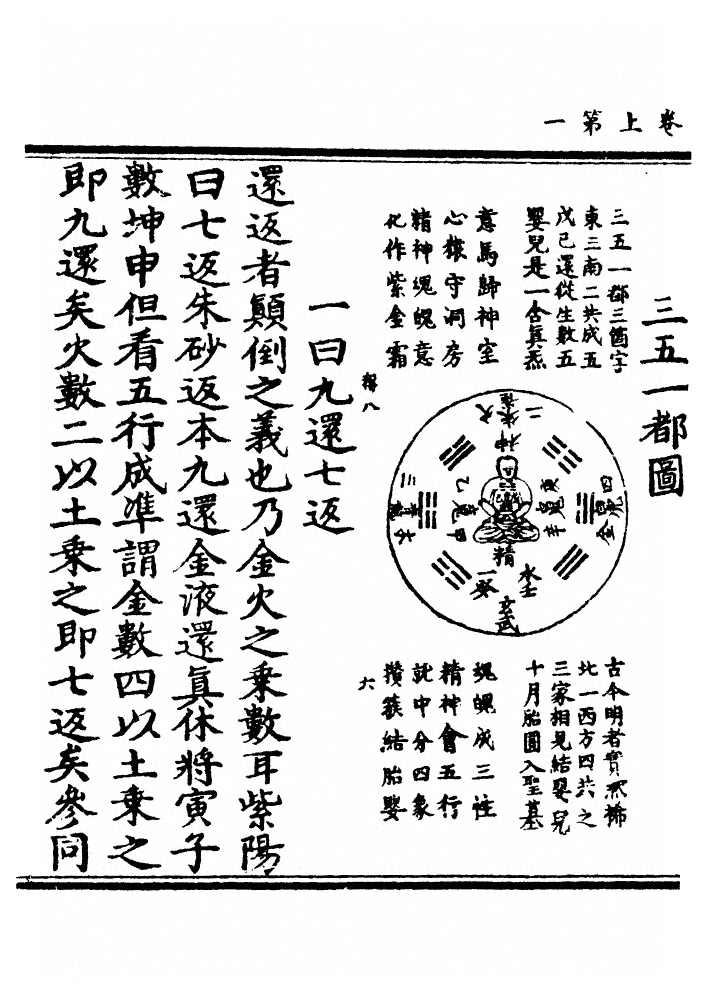 卷上第一
三五一都圖
三五一都三箇字
東三南二共成五
戊己還從生數五
嬰兒是一含眞炁
意馬歸神室
心猿守洞房
精神魂魄意
化作紫金霜
二
朱雀
火
神
三
青龍
木
甲
乙
魂
庚
辛
魄
四
白虎
金
精
一
水
壬
癸
玄武
古今明者實然稀
北一西方四共之
三家相見結嬰兒
十月胎圓入聖墓
魂魄成三性
精神會五行
就中分四象
攢簇結胎嬰
稱八
六
一曰九還七返
還返者顚倒之義也乃金火之乘數耳紫陽
曰七返朱砂返本九還金液還眞休將寅子
數坤申但看五行成準謂金數四以土乘之
即九還矣火數二以土乘之即七返矣參同